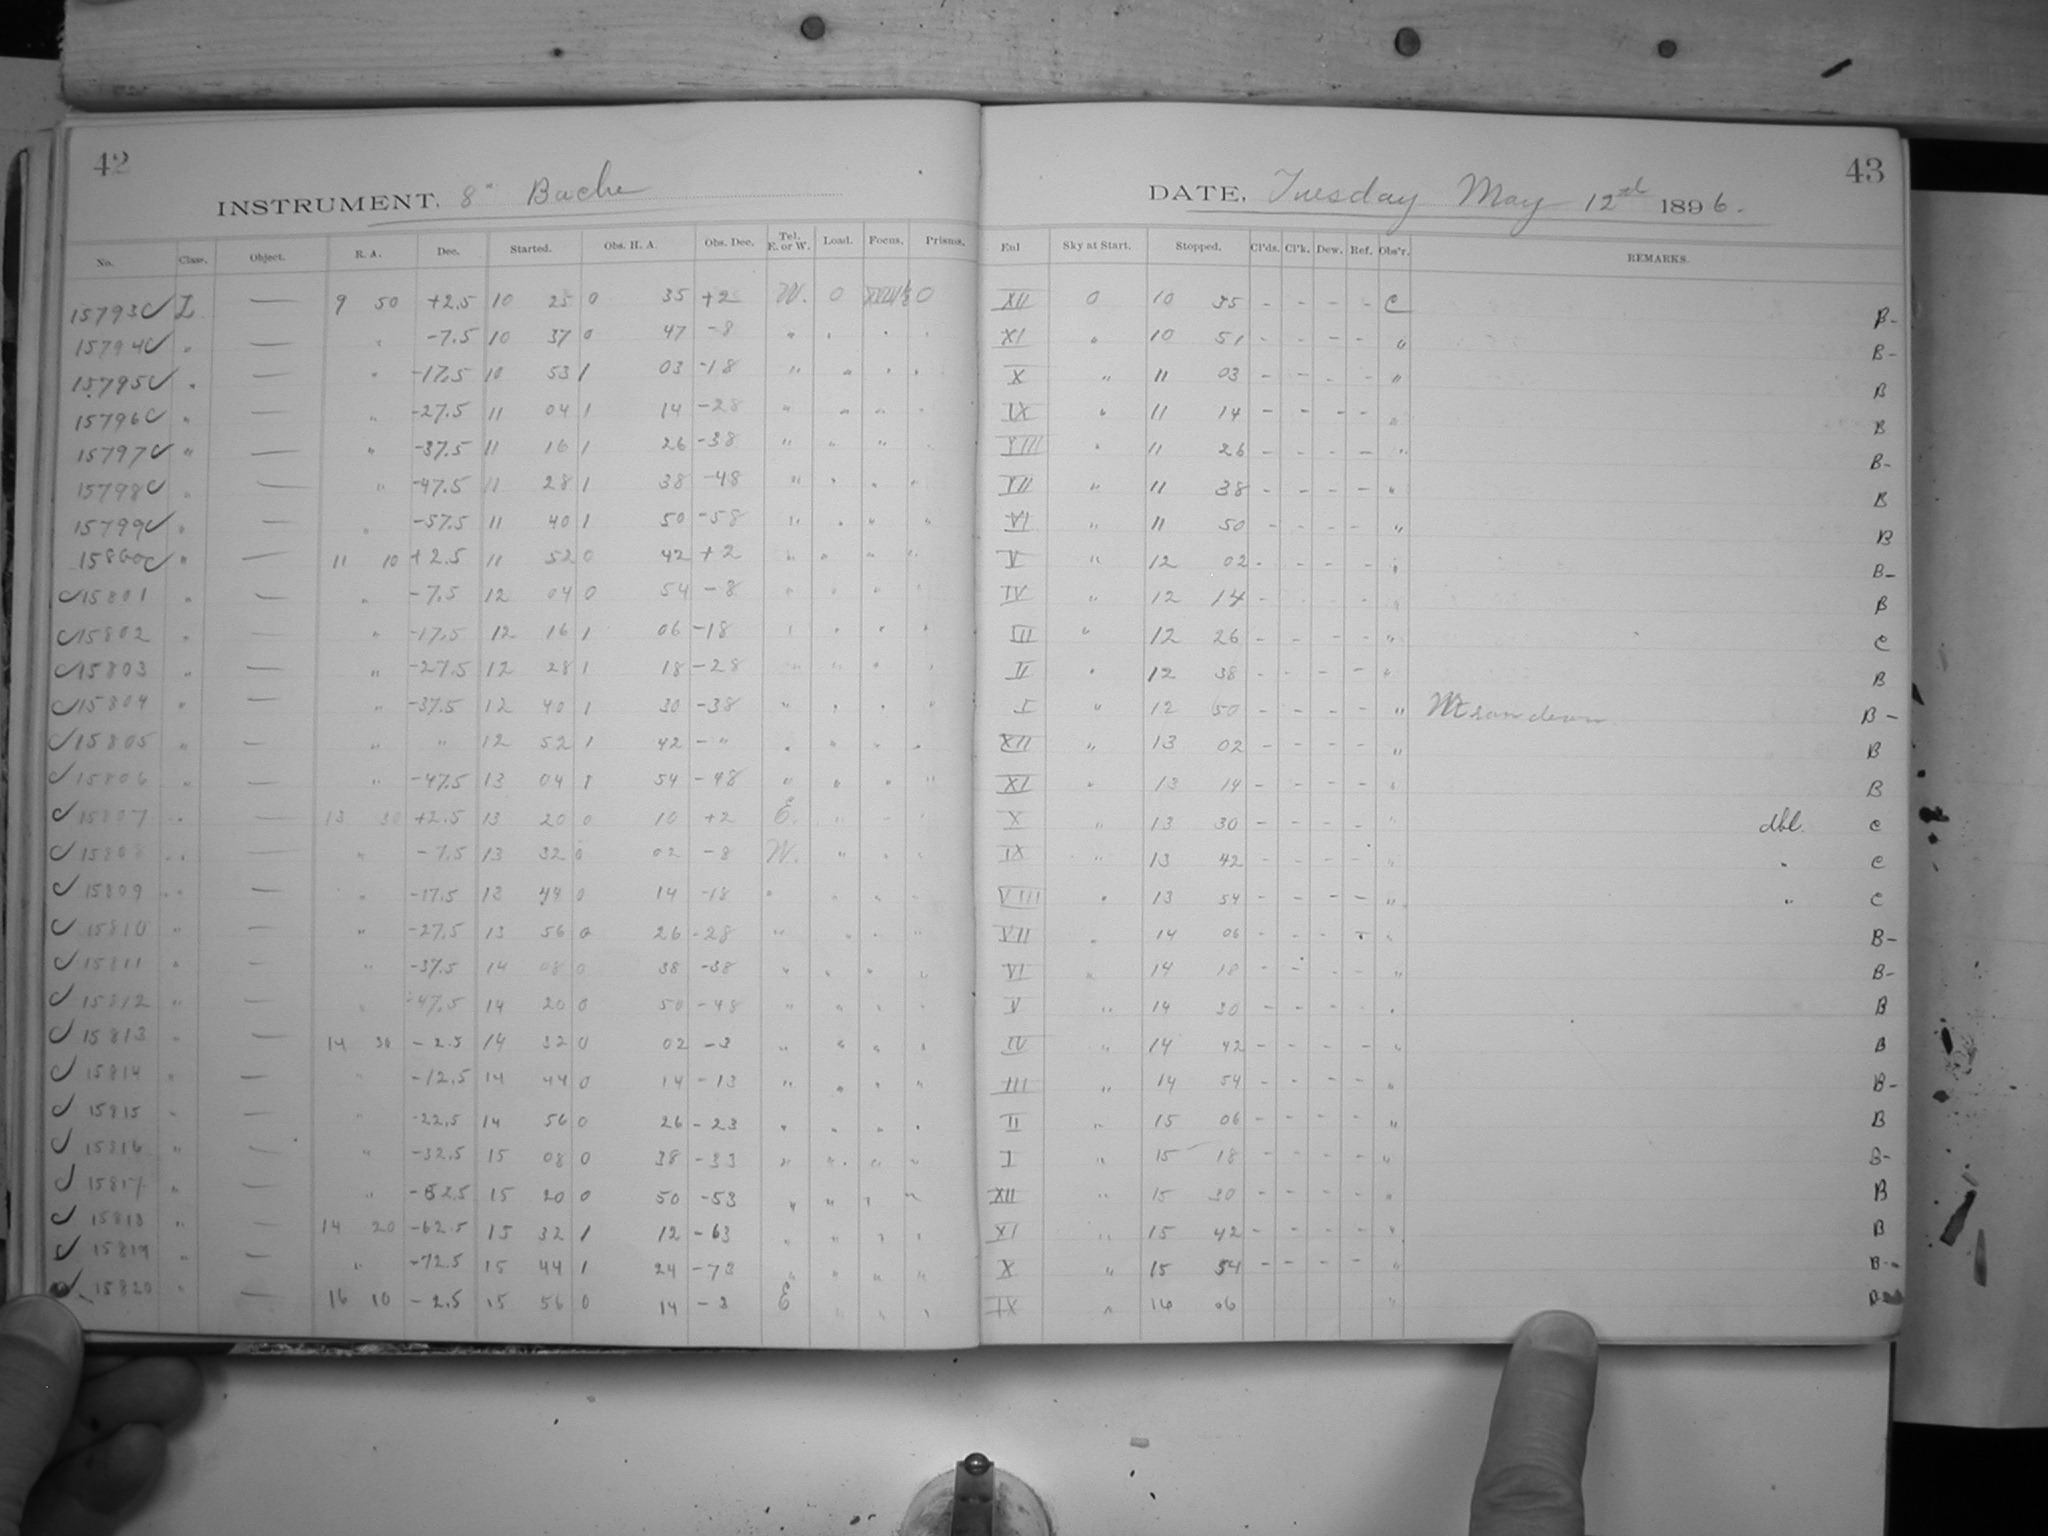 42
INSTRUMENT. 8" Bache
No. Class. Object. R. A. Dec. Started. Obs. H. A. Obs. Dec. Tel. E. or W. Load. Focus. Prisms.
15793 L — 9 50 +2.5 10 25 0 35 +2 W. 0 0
15794 " — " -7.5 10 37 0 47 -8 " " " "
15795 " — " -17.5 10 53 1 03 -18 " " " "
15796 " — " -27.5 11 04 1 14 -28 " " " "
15797 " — " -37.5 11 16 1 26 -38 " " " "
15798 " — " -47.5 11 28 1 38 -48 " " " "
15799 " — " -57.5 11 40 1 50 -58 " " " "
15800 " — 11 10 +2.5 11 52 0 42 +2 " " " "
15801 " — " -7.5 12 04 0 54 -8 " " " "
15802 " — " -17.5 12 16 1 06 -18 " " " "
15803 " — " -27.5 12 28 1 18 -28 " " " "
15804 " — " -37.5 12 40 1 30 -38 " " " "
15805 " — " " 12 52 1 42 - " " " " "
15806 " — " -47.5 13 04 1 54 -48 " " " "
15807 " — 13 30 +2.5 13 20 0 10 +2 E. " " "
15808 " — " -7.5 13 32 0 02 -8 W. " " "
15809 " — " -17.5 13 44 0 14 -18 " " " "
15810 " — " -27.5 13 56 0 26 -28 " " " "
15811 " — " -37.5 14 08 0 38 -38 " " " "
15812 " — " -47.5 14 20 0 50 -48 " " " "
15813 " — 14 30 -2.5 14 32 0 02 -3 " " " "
15814 " — " -12.5 14 44 0 14 -13 " " " "
15815 " — " -22.5 14 56 0 26 -23 " " " "
15816 " — " -32.5 15 08 0 38 -33 " " " "
15817 " — " -52.5 15 20 0 50 -53 " " " "
15818 " — 14 20 -62.5 15 32 1 12 -63 " " " "
15819 " — " -72.5 15 44 1 24 -73 " " " "
15820 " — 16 10 -2.5 15 56 0 14 -3 E " " "
43
DATE, Tuesday May 12 1896.
Sky at Start. Stopped. Cl'ds. Cl'k. Dew. Ref. Obs'r. REMARKS.
XII 0 10 35 - - - - C B-
XI " 10 51 - - - - " B-
X " 11 03 - - - - " B
IX " 11 14 - - - - " B
VIII " 11 26 - - - - " B-
VII " 11 38 - - - - " B
VI " 11 50 - - - - " B
V " 12 02 - - - - " B-
IV " 12 14 - - - - " B
III " 12 26 - - - - " C
II " 12 38 - - - - " B
I " 12 50 - - - - " B-
XII " 13 02 - - - - " B
XI " 13 14 - - - - " B
X " 13 30 - - - - " dbl. C
IX " 13 42 - - - - " " C
VIII " 13 54 - - - - " " C
VII " 14 06 - - - - " B-
VI " 14 18 - - - - " B-
V " 14 30 - - - - " B
IV " 14 42 - - - - " B
III " 14 54 - - - - " B-
II " 15 06 - - - - " B
I " 15 18 - - - - " B-
XII " 15 30 - - - - " B
XI " 15 42 - - - - " B
X " 15 54 - - - - " B-
IX " 16 06 "